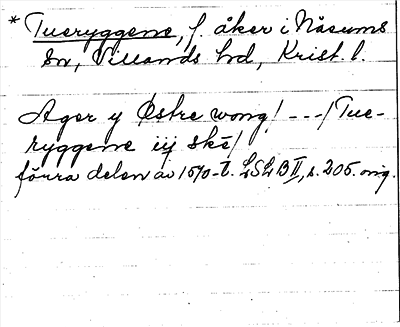 * Tueryggene, f. åker i Näsums
sn, Villands hd, Krist. l.
Ager y Østre wong/ ---/Tue-
ryggene iij skē/
förra delen av 1570-t. LSLB II, s. 205. orig.